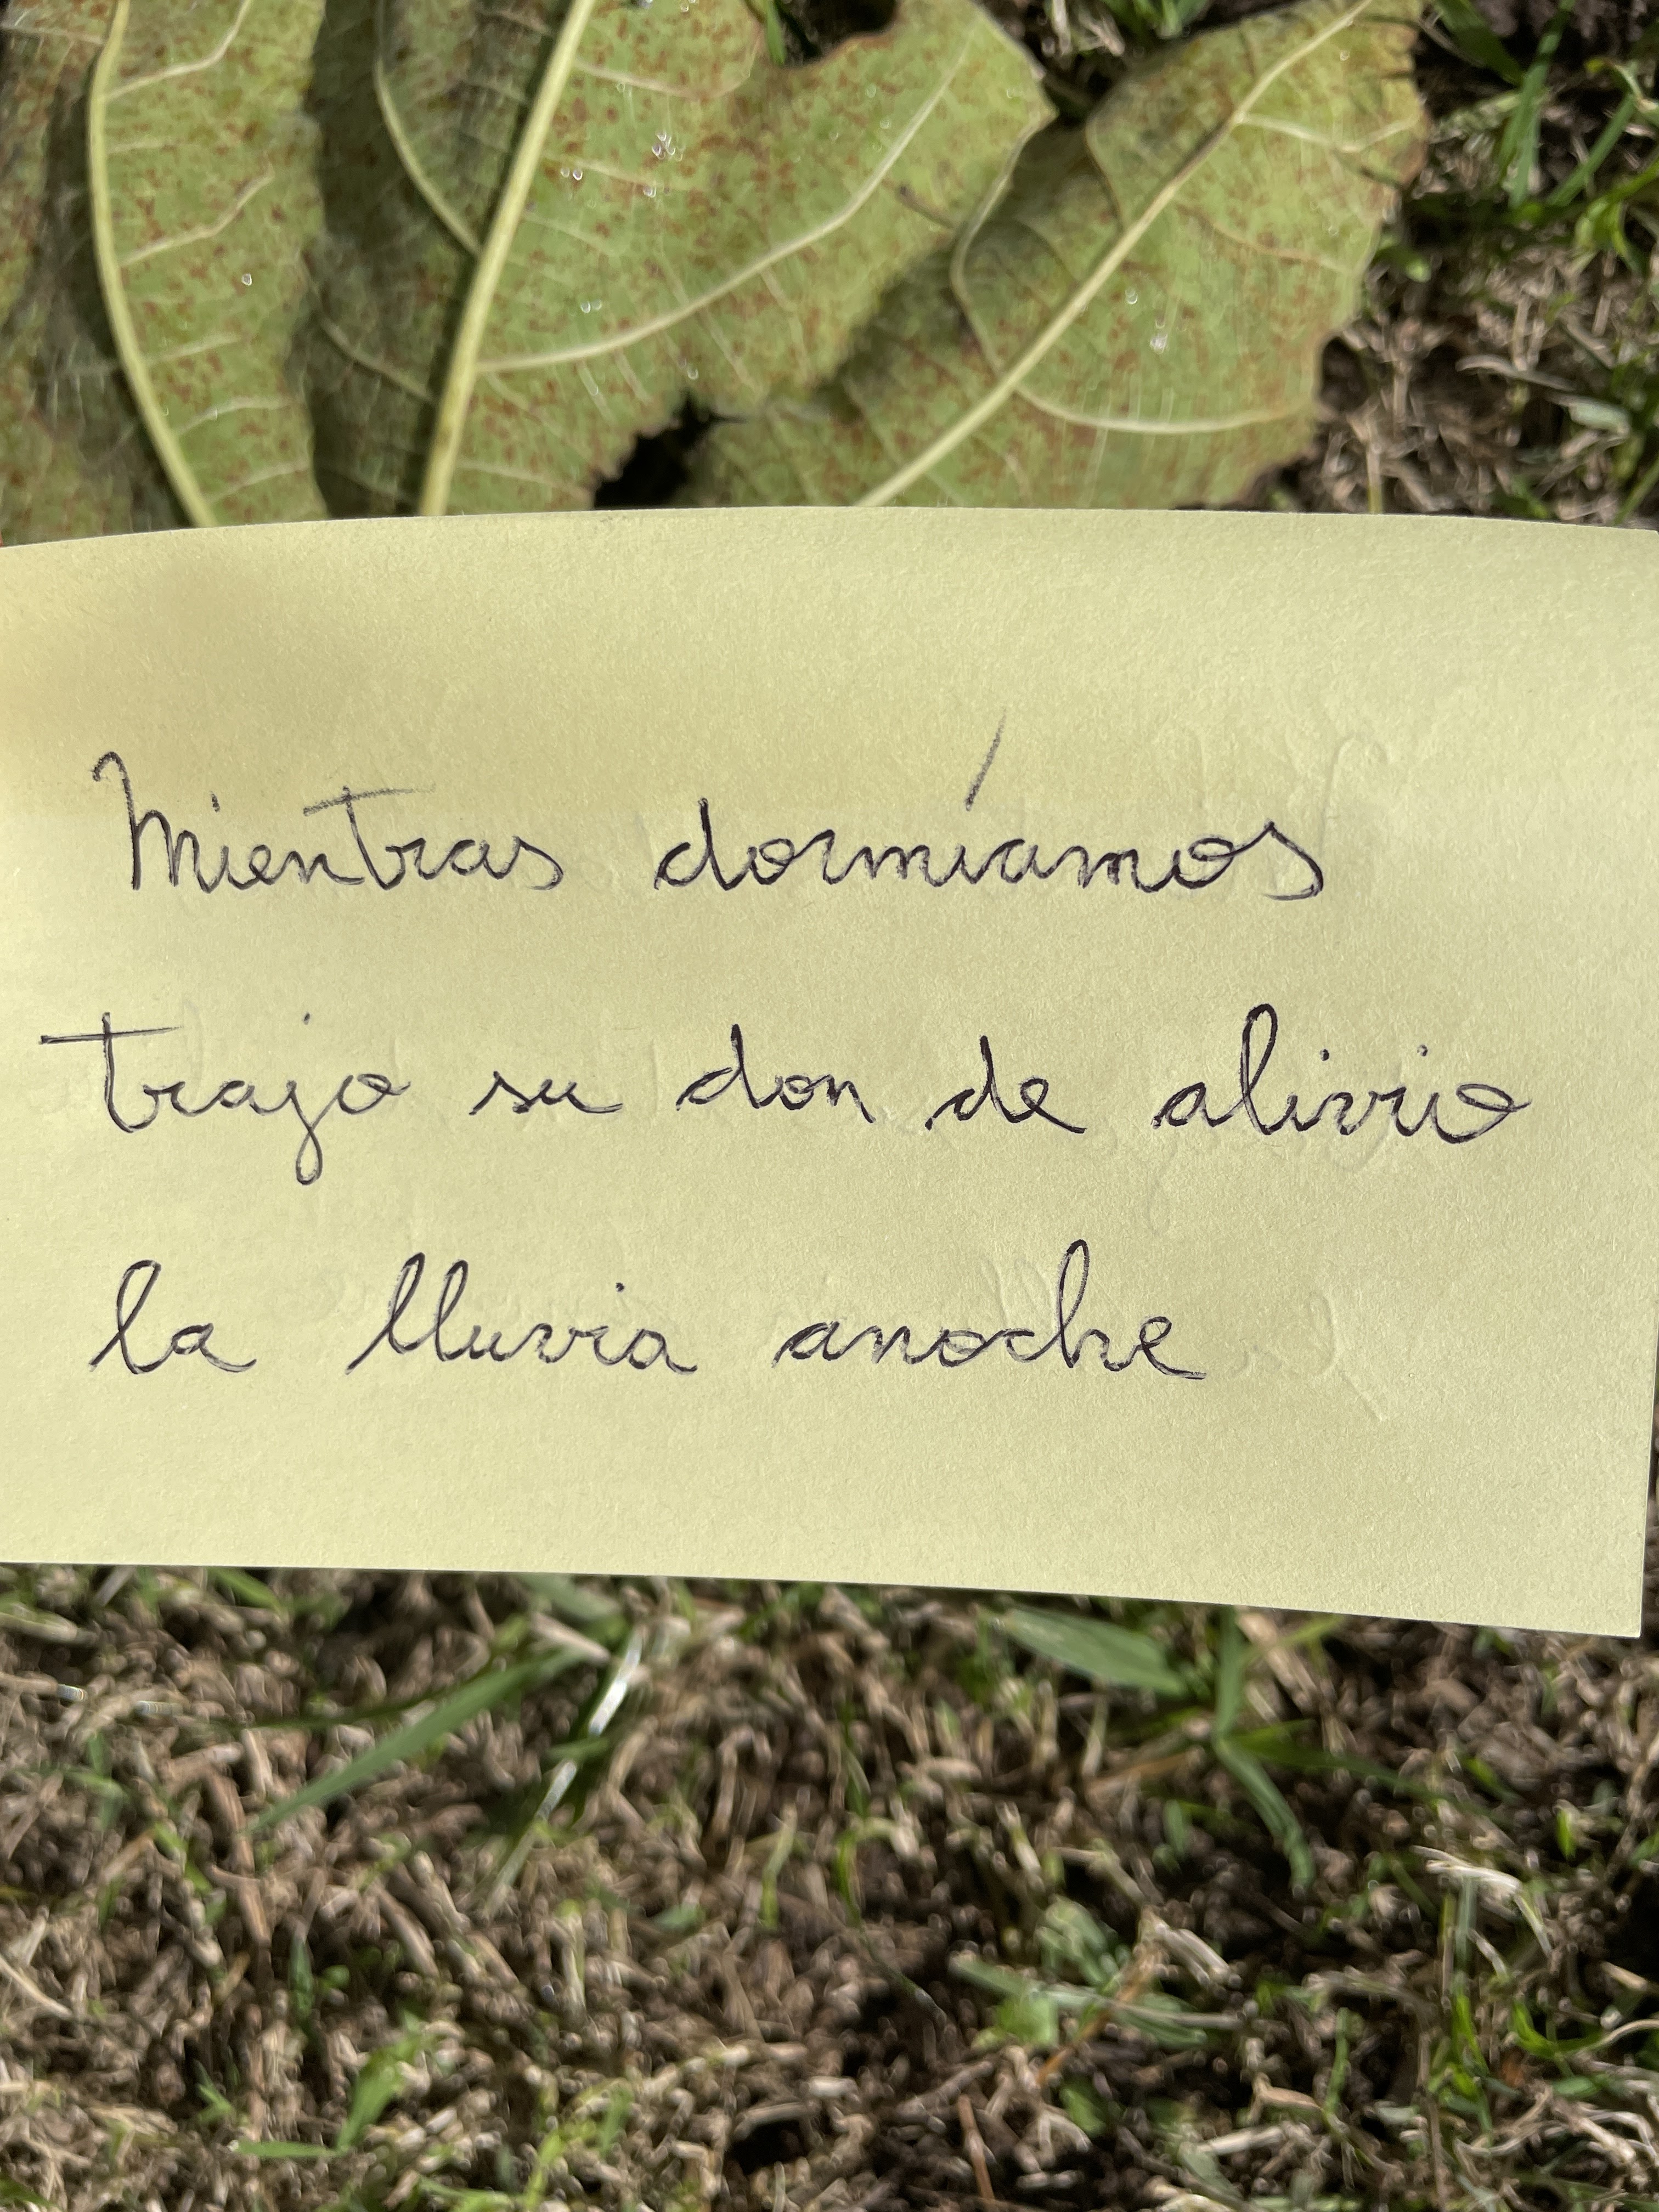 Mientras dormíamos
trajo su don de alivio
la lluvia anoche